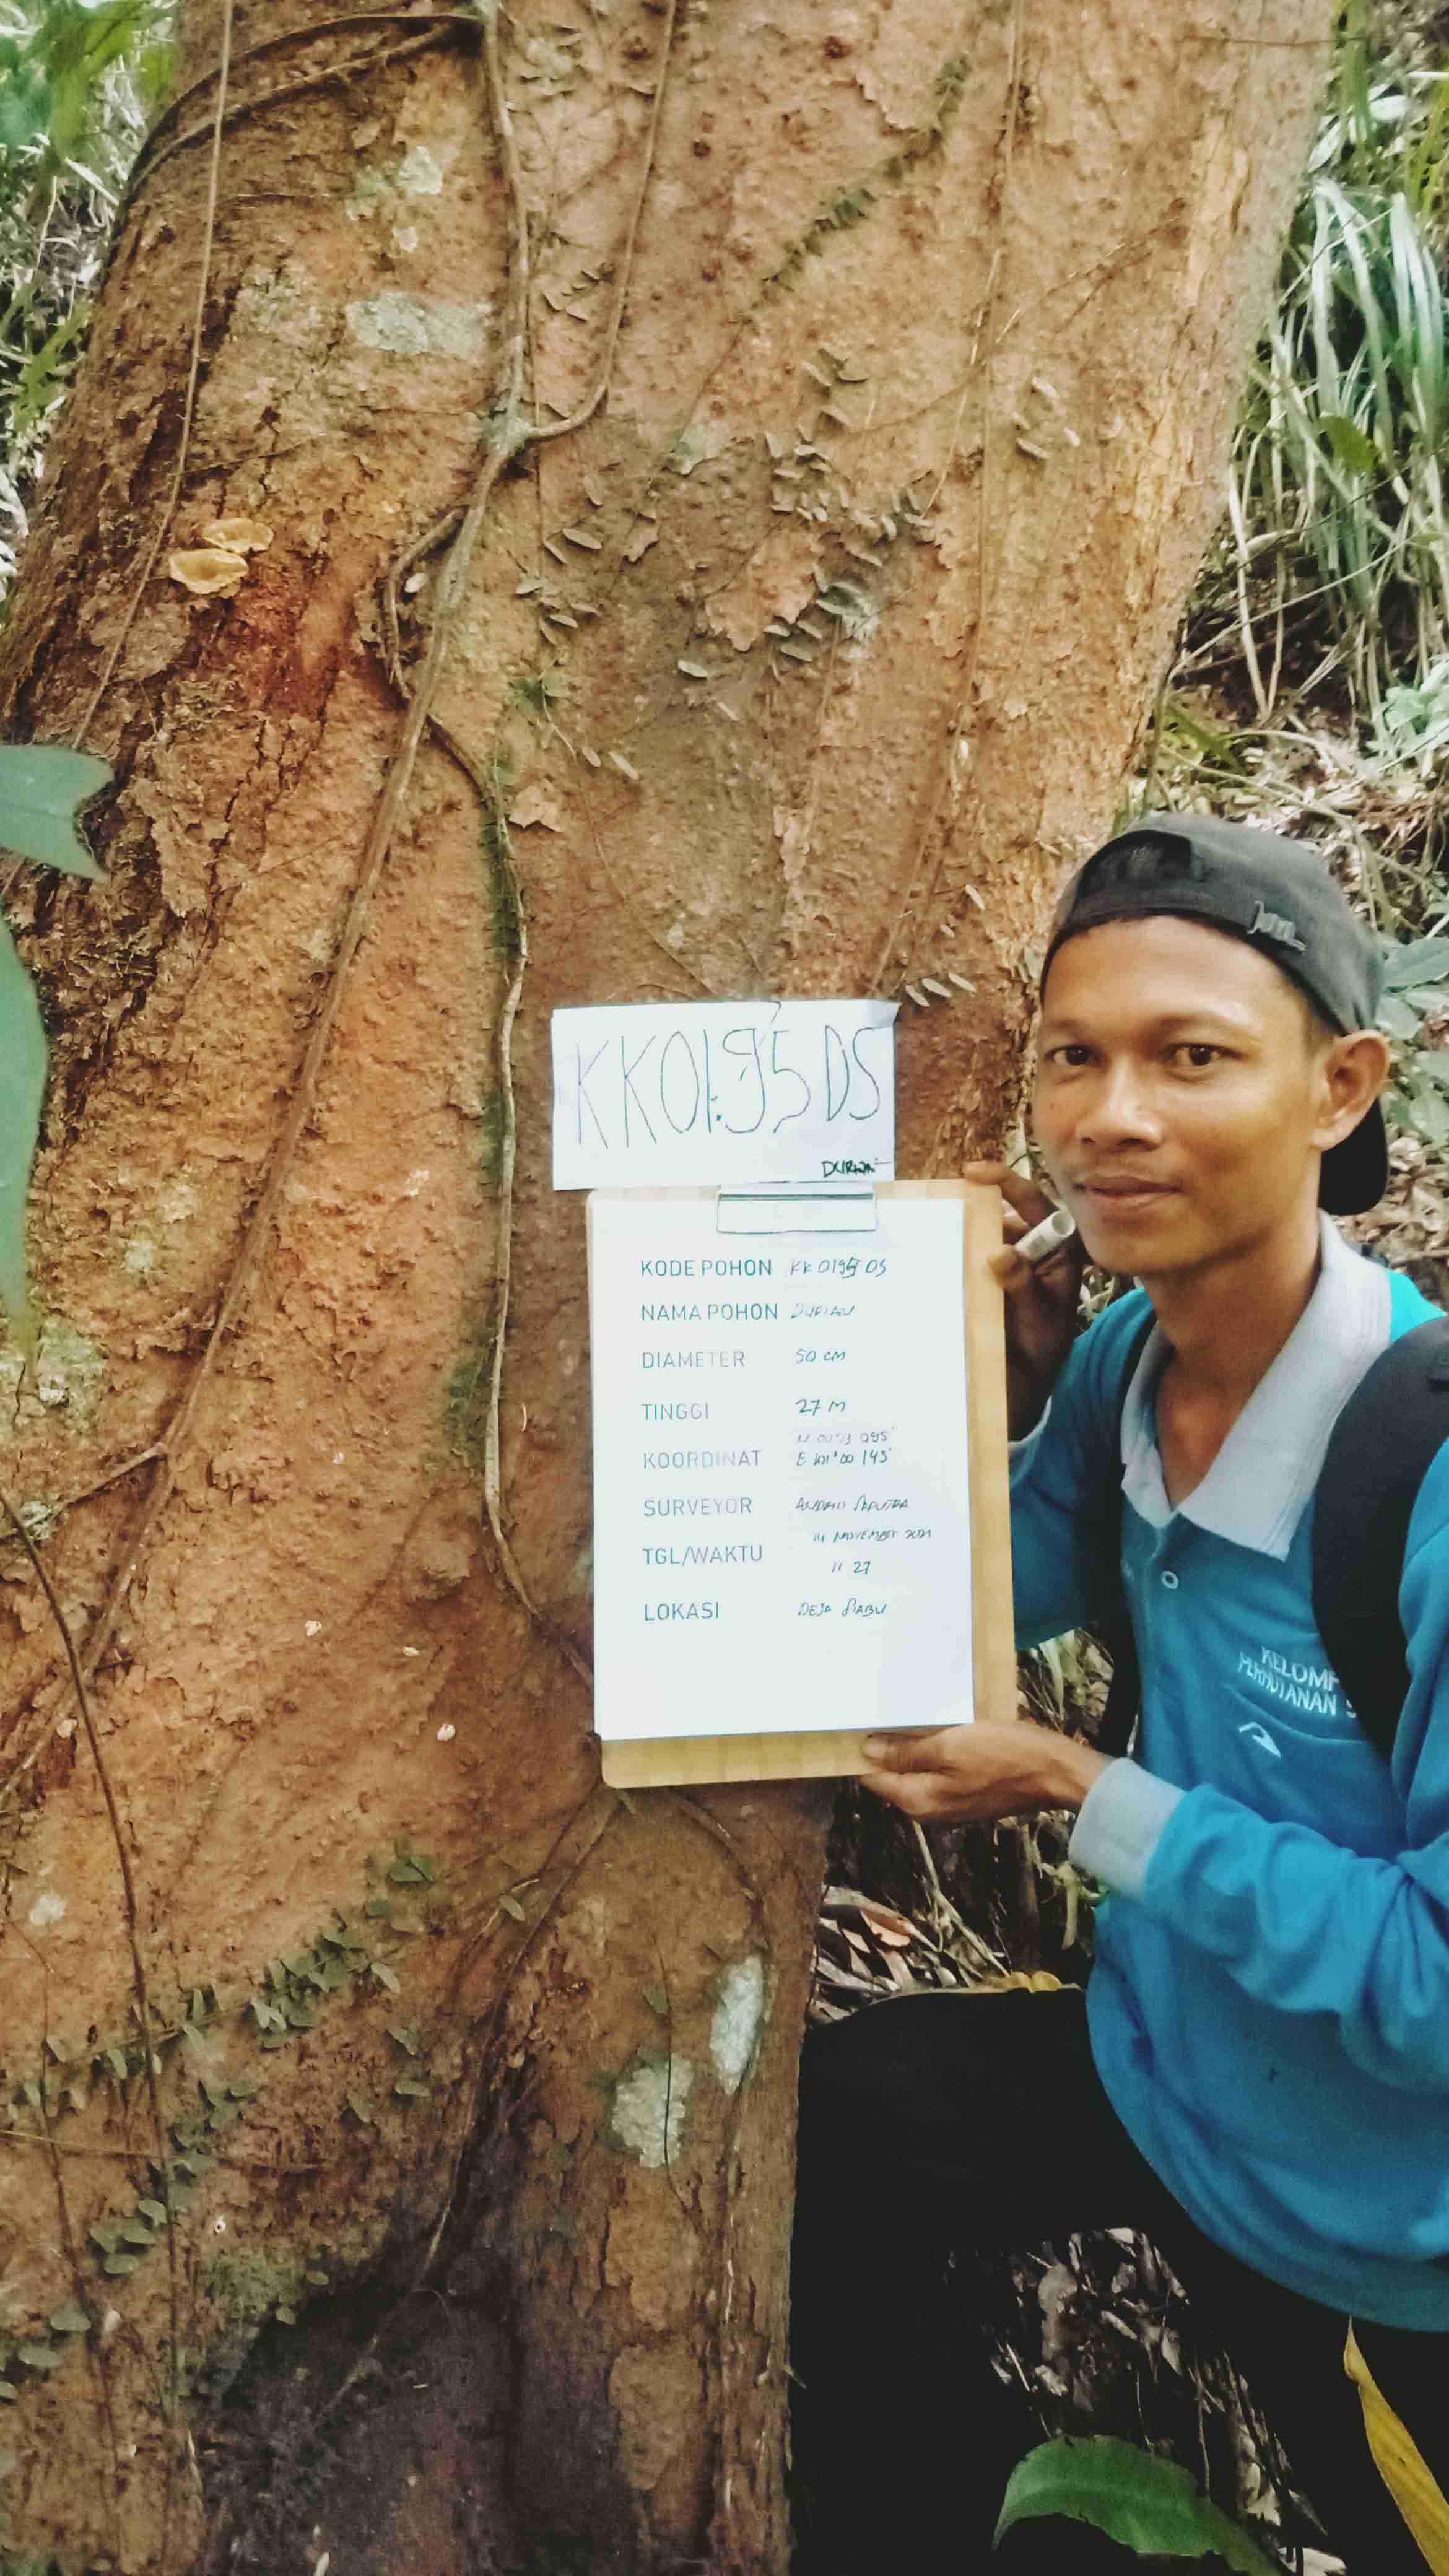 KK0195DS
DURIAN
KODE POHON KK 0195 DS
NAMA POHON DURIAN
DIAMETER 50 CM
TINGGI 27 M
KOORDINAT
E 101°00 145'
SURVEYOR SAPUTRA
TGL/WAKTU 14 NOVEMBER 2021
11 27
LOKASI DESA SIABU
KELOMP
PERHUTANAN S